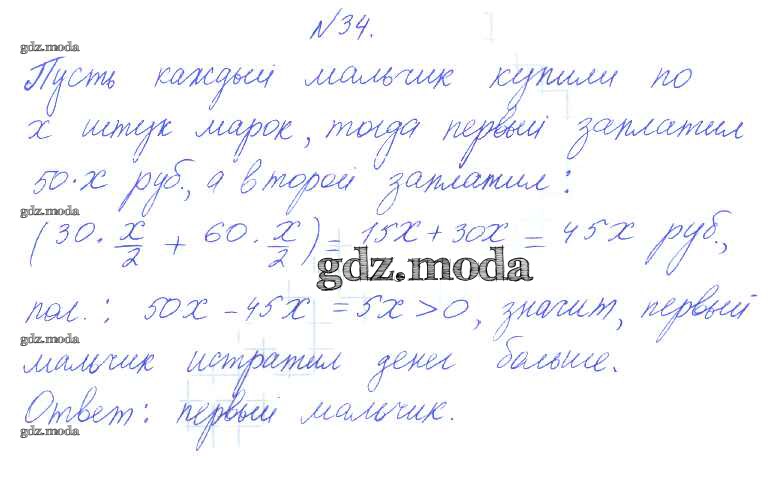 №34.
gdz.moda
Пусть каждый мальчик купили по
x штук марок, тогда первый заплатил
50·x руб., а второй заплатил:
gdz.moda
(30·x/2 + 60·x/2) = 15x + 30x = 45x руб.,
gdz.moda
пол.: 50x - 45x = 5x > 0, значит, первый
gdz.moda
мальчик истратил денег больше.
Ответ: первый мальчик.
gdz.moda